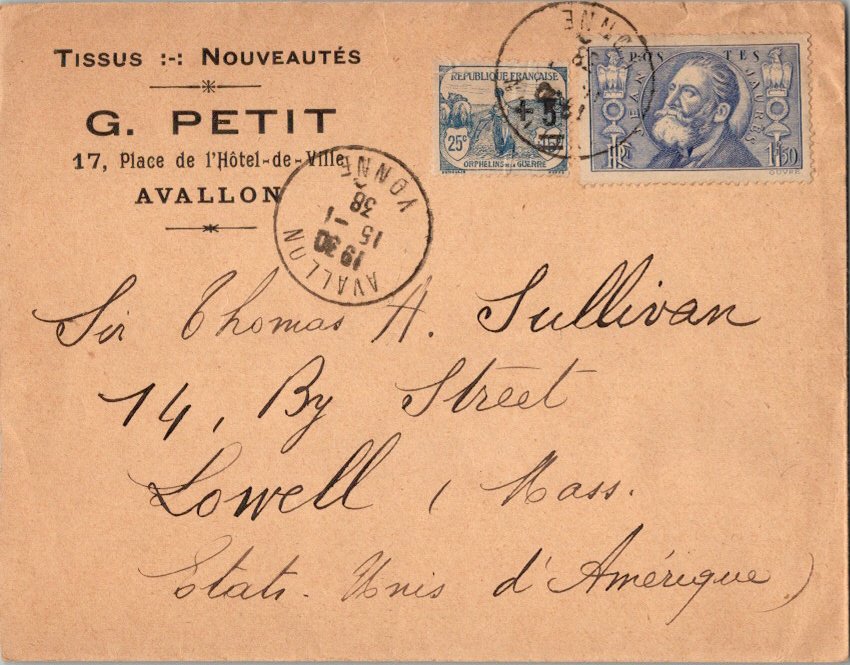 TISSUS :-: NOUVEAUTÉS
G. PETIT
17, Place de l'Hôtel-de-Ville
AVALLON
RÉPUBLIQUE FRANÇAISE
+5
25c
15c
ORPHELINS DE LA GUERRE
POSTES
JEAN JAURÈS
1f50
1f50
AVALLON
1930
15 -1
38
YONNE
YONNE
Sir Thomas A. Sullivan
14, By Street
Lowell (Mass.
Etats-Unis d'Amérique)